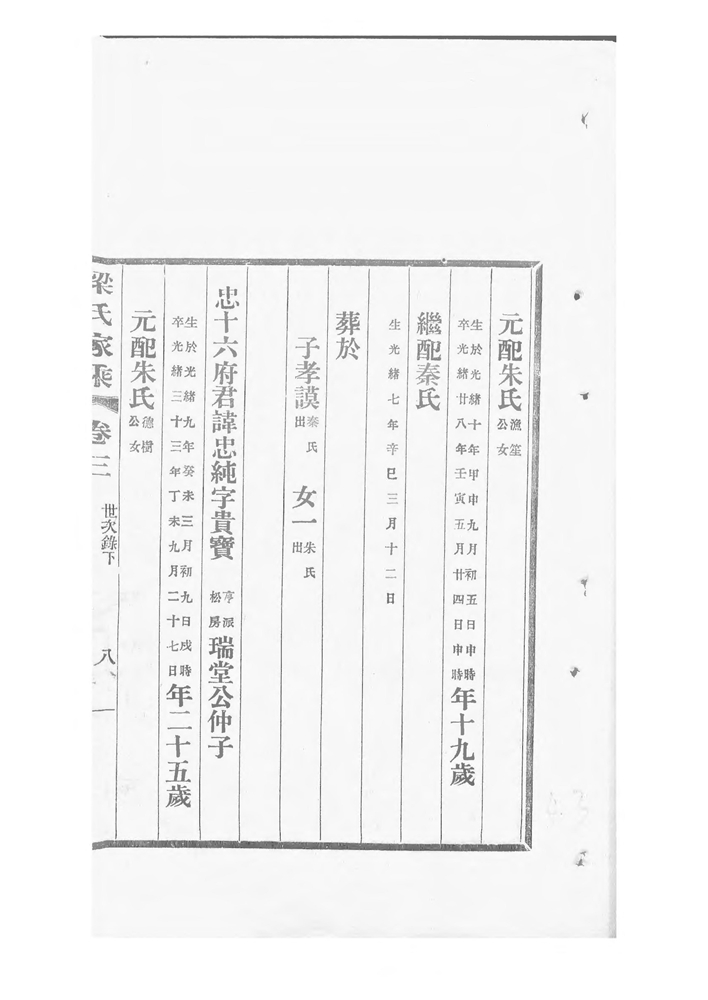 元配朱氏漁笙公女
生於光緒十年甲申九月初五日申時卒光緒廿八年壬寅五月廿四日申時年十九歲
繼配秦氏
生光緒七年辛巳三月十二日
葬於
子孝謨秦氏出 女一朱氏出
忠十六府君諱忠純字貴寶亨派松房瑞堂公仲子
生於光緒九年癸未三月初九日戌時卒光緒三十三年丁未九月二十七日年二十五歲
元配朱氏德樹公女
梁氏家乘 卷三 世次錄下 八